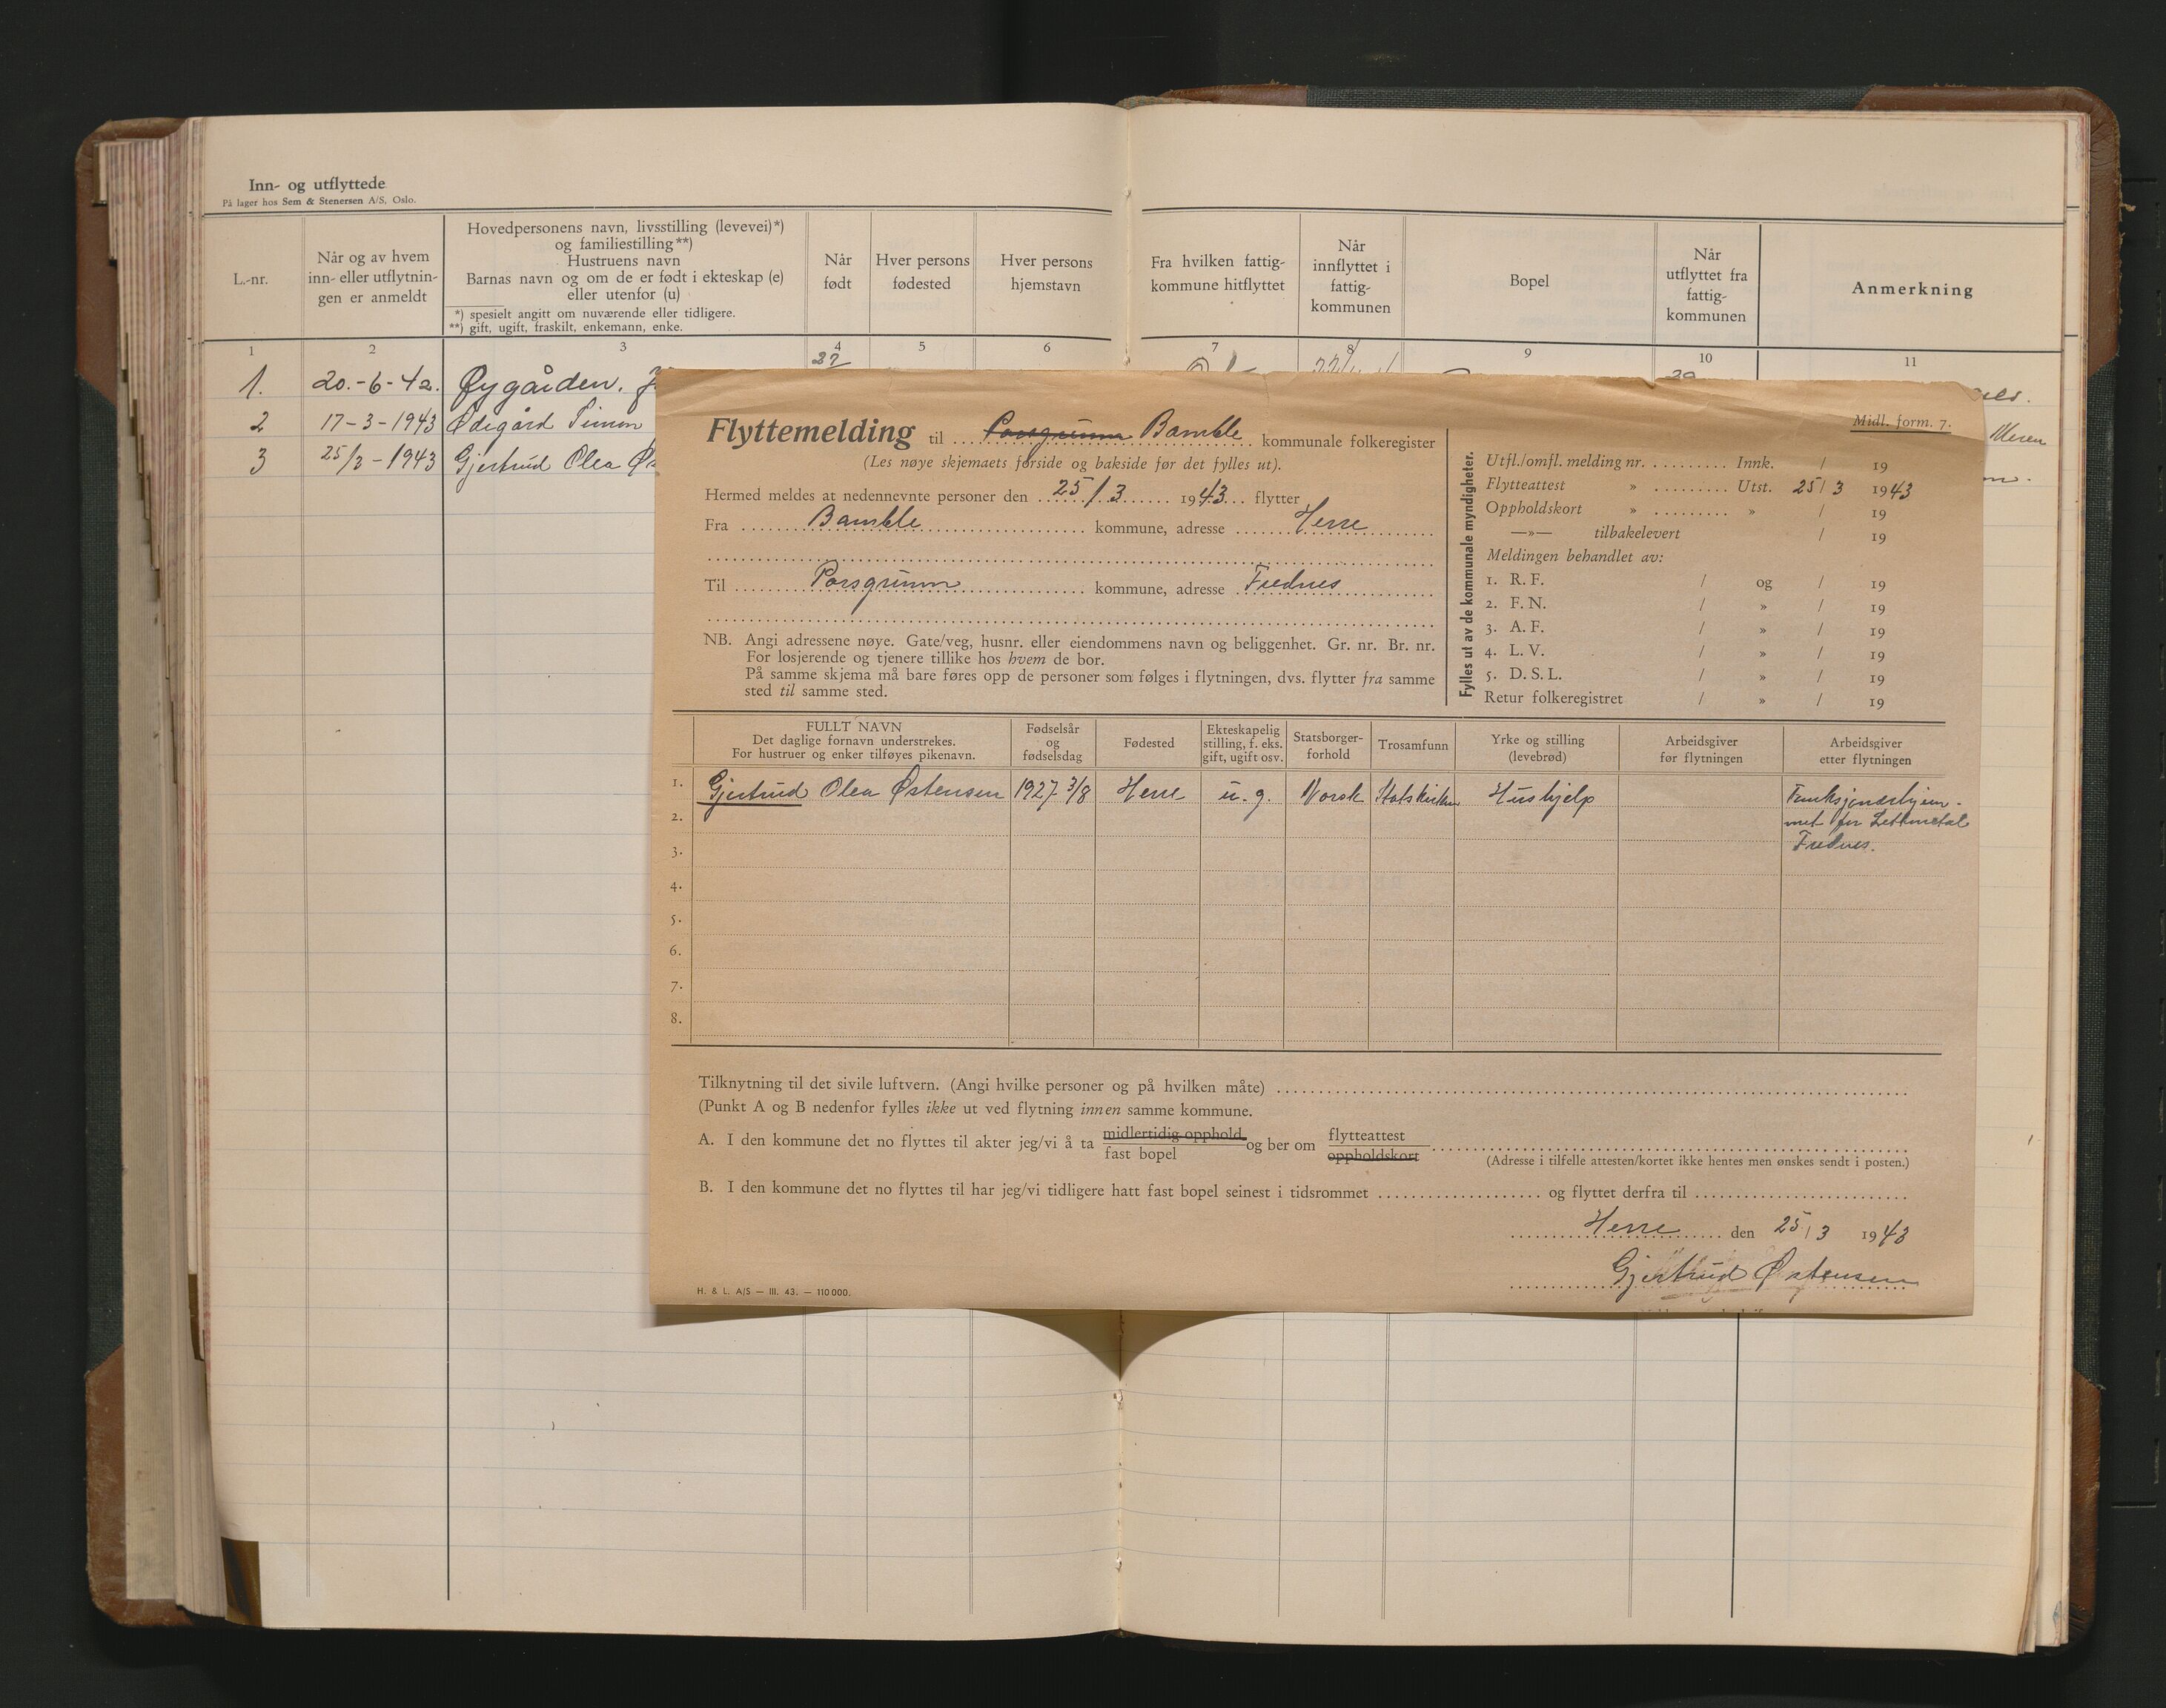 Inn- og utflyttede
På lager hos Sem & Stenersen A/S, Oslo.
L.-nr.
Når og av hvem
inn- eller utflytnin-
gen er anmeldt
Hovedpersonens navn, livsstilling (levevei)*)
og familiestilling**)
Hustruens navn
Barnas navn og om de er født i ekteskap (e)
eller utenfor (u)
*) spesielt angitt om nuværende eller tidligere.
**) gift, ugift, fraskilt, enkemann, enke.
Når
født
Hver persons
fødested
Hver persons
hjemstavn
Fra hvilken fattig-
kommune hitflyttet
Når
innflyttet i
fattig-
kommunen
Bopel
Når
utflyttet fra
fattig-
kommunen
Anmerkning
1 2 3 4 5 6 7 8 9 10 11
1. 20.-6-42. Øygården.
2 17-3-1943 Ødegård Simon
3 25/3-1943 Gjertrud Olea
Flyttemelding til Porsgrunn Bamble kommunale folkeregister
(Les nøye skjemaets forside og bakside før det fylles ut).
Hermed meldes at nedennevnte personer den 25/3 1943 flytter
Fra Bamble kommune, adresse Herre
Til Porsgrunn kommune, adresse Frednes
NB. Angi adressene nøye. Gate/veg, husnr. eller eiendommens navn og beliggenhet. Gr. nr. Br. nr.
For losjerende og tjenere tillike hos hvem de bor.
På samme skjema må bare føres opp de personer som følges i flytningen, dvs. flytter fra samme
sted til samme sted.
Midl. form. 7.
Fylles ut av de kommunale myndigheter.
Utfl./omfl. melding nr. .......... Innk. / 19
Flytteattest » ......... Utst. 25/3 1943
Oppholdskort » ......... » / 19
—»— tilbakelevert / 19
Meldingen behandlet av:
1. R. F. / og / 19
2. F. N. / » / 19
3. A. F. / » / 19
4. L. V. / » / 19
5. D. S. L. / » / 19
Retur folkeregistret / » / 19
FULLT NAVN
Det daglige fornavn understrekes.
For hustruer og enker tilføyes pikenavn.
Fødselsår
og
fødselsdag
Fødested
Ekteskapelig
stilling, f. eks.
gift, ugift osv.
Statsborger-
forhold
Trosamfunn
Yrke og stilling
(levebrød)
Arbeidsgiver
før flytningen
Arbeidsgiver
etter flytningen
1. Gjertrud Olea Østensen 1927 3/8 Herre u. g. Norsk Statskirken Hushjelp Funksjonærhjem-
met for Lettmetal
Frednes.
2.
3.
4.
5.
6.
7.
8.
Tilknytning til det sivile luftvern. (Angi hvilke personer og på hvilken måte)
(Punkt A og B nedenfor fylles ikke ut ved flytning innen samme kommune.
A. I den kommune det no flyttes til akter jeg/vi å ta midlertidig opphold fast bopel og ber om flytteattest oppholdskort
(Adresse i tilfelle attesten/kortet ikke hentes men ønskes sendt i posten.)
B. I den kommune det no flyttes til har jeg/vi tidligere hatt fast bopel seinest i tidsrommet .......... og flyttet derfra til ..........
Herre den 25/3 1943
Gjertrud Østensen
H. & L. A/S — III. 43. — 110 000.